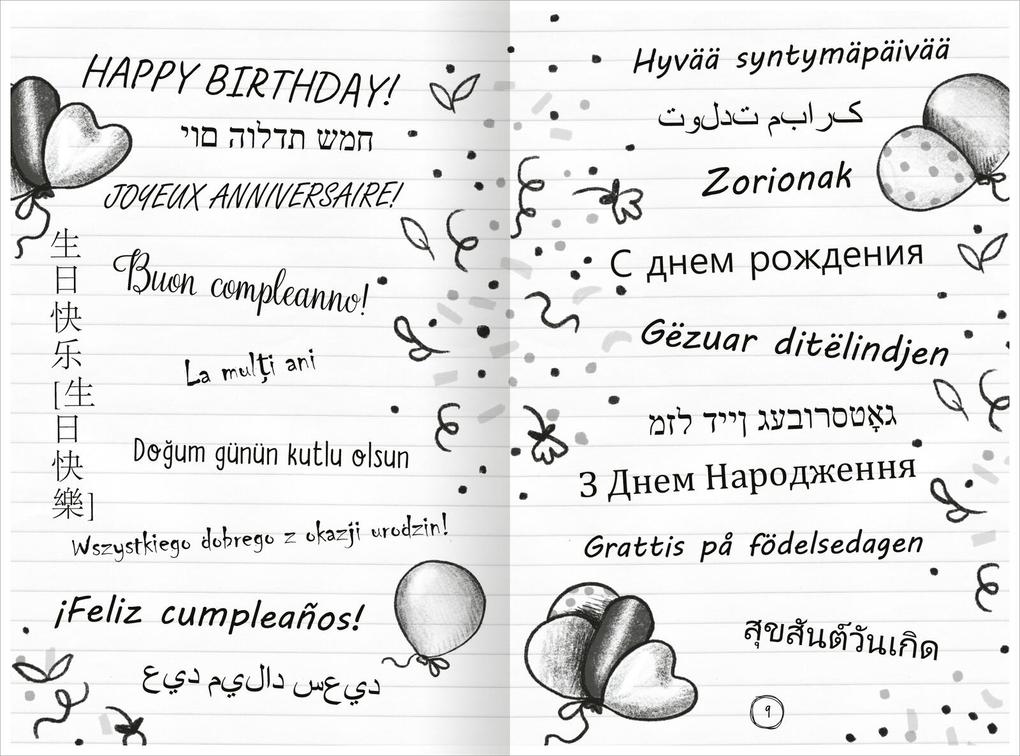 HAPPY BIRTHDAY!
חמש תדלוה םוי
JOYEUX ANNIVERSAIRE!
生日快乐[生日快樂]
Buon compleanno!
La mulți ani
Doğum günün kutlu olsun
Wszystkiego dobrego z okazji urodzin!
¡Feliz cumpleaños!
ديعس دالیم ديع
Hyvää syntymäpäivää
کرابم تدلوت
Zorionak
С днем рождения
Gëzuar ditëlindjen
גאָטסרובעג ןייד לזמ
З Днем Народження
Grattis på födelsedagen
สุขสันต์วันเกิด
9